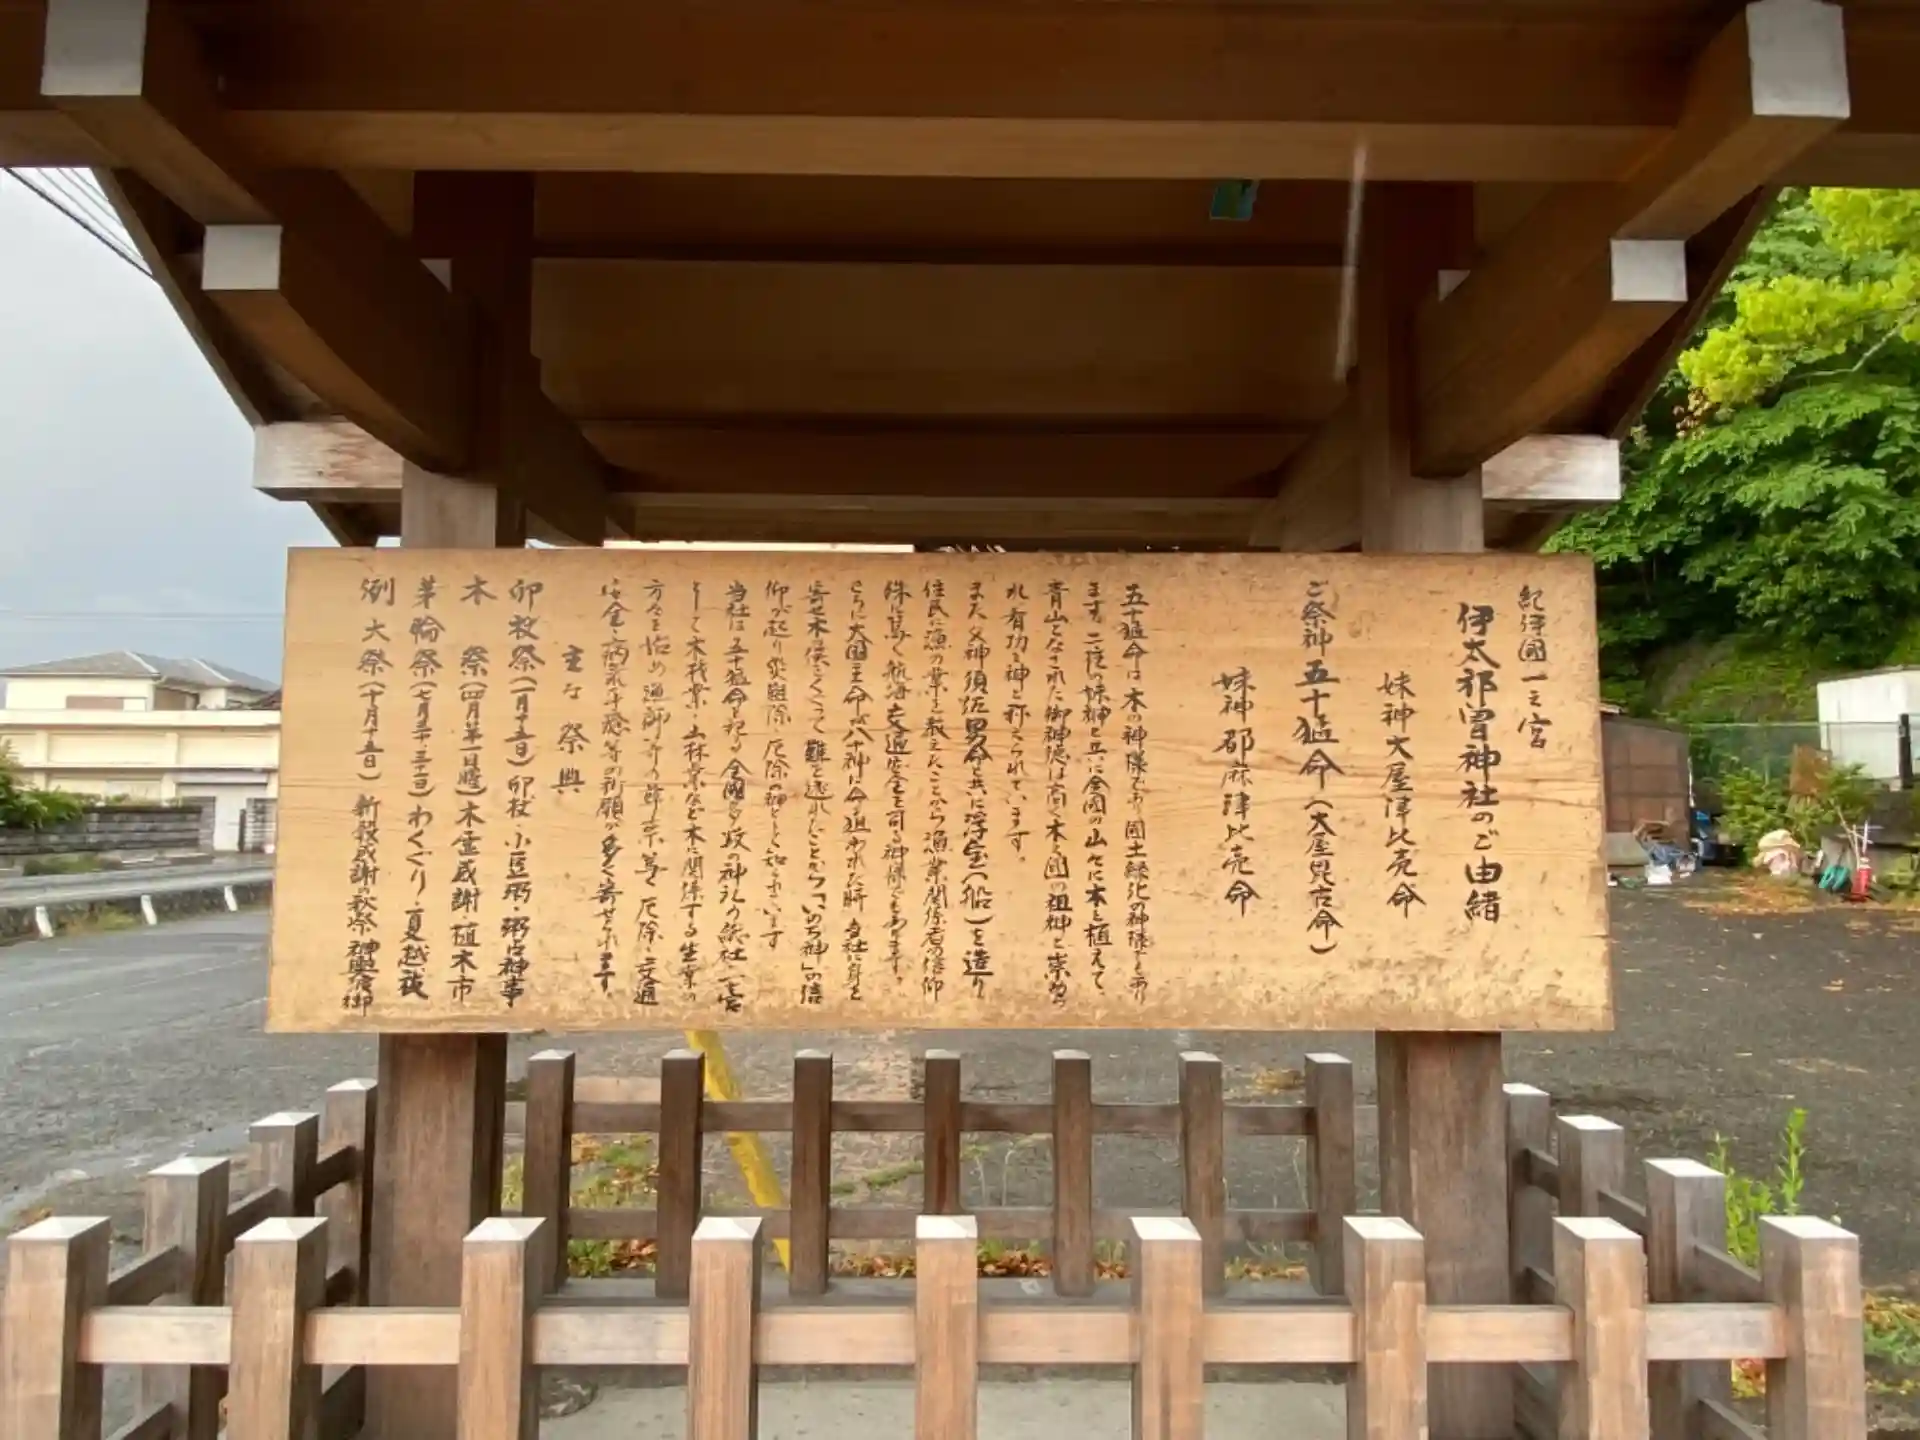 紀伊國一之宮
伊太祁曽神社のご由緒
妹神大屋津比売命
ご祭神 五十猛命(大屋毘古命)
妹神都麻津比売命
五十猛命は木の神様であり国土緑化の神様であり
ます。二柱の妹神と共に全国の山々に木を植えて、
青山となされた御神徳は高く木の国の祖神と崇め
れ有功の神と称えられています。
また父神須佐男命と共に浮宝(船)を造り
住民に漁の業を教えたことから漁業関係者の信仰
殊に篤く航海交通安全を司る神様でもあります。
さらに大国主命が八十神に命を狙われた時当社に身を
寄せ木の俣をくぐって難を逃れたことから「いのち神」の信
仰が起り災難除、厄除の神として知られています
当社は五十猛命を祀る全国多数の神社の総社・一宮
として木材業・山林業など木に関係する生業の
方々を始め漁師等の
安全、病気平癒等の祈願が多く寄せられます。
主な祭典
卯杖祭(一月十五日)卯杖・小豆粥・粥占神事
木祭(四月第一日曜)木霊感謝・植木市
茅輪祭(七月三十・三十一日)わくぐり・夏越祓
例大祭(十月十五日)新穀感謝の秋祭 神輿渡御